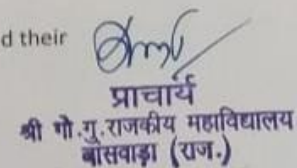 d their
प्राचार्य
श्री गो.गु.राजकीय महाविद्यालय
बांसवाड़ा (राज.)